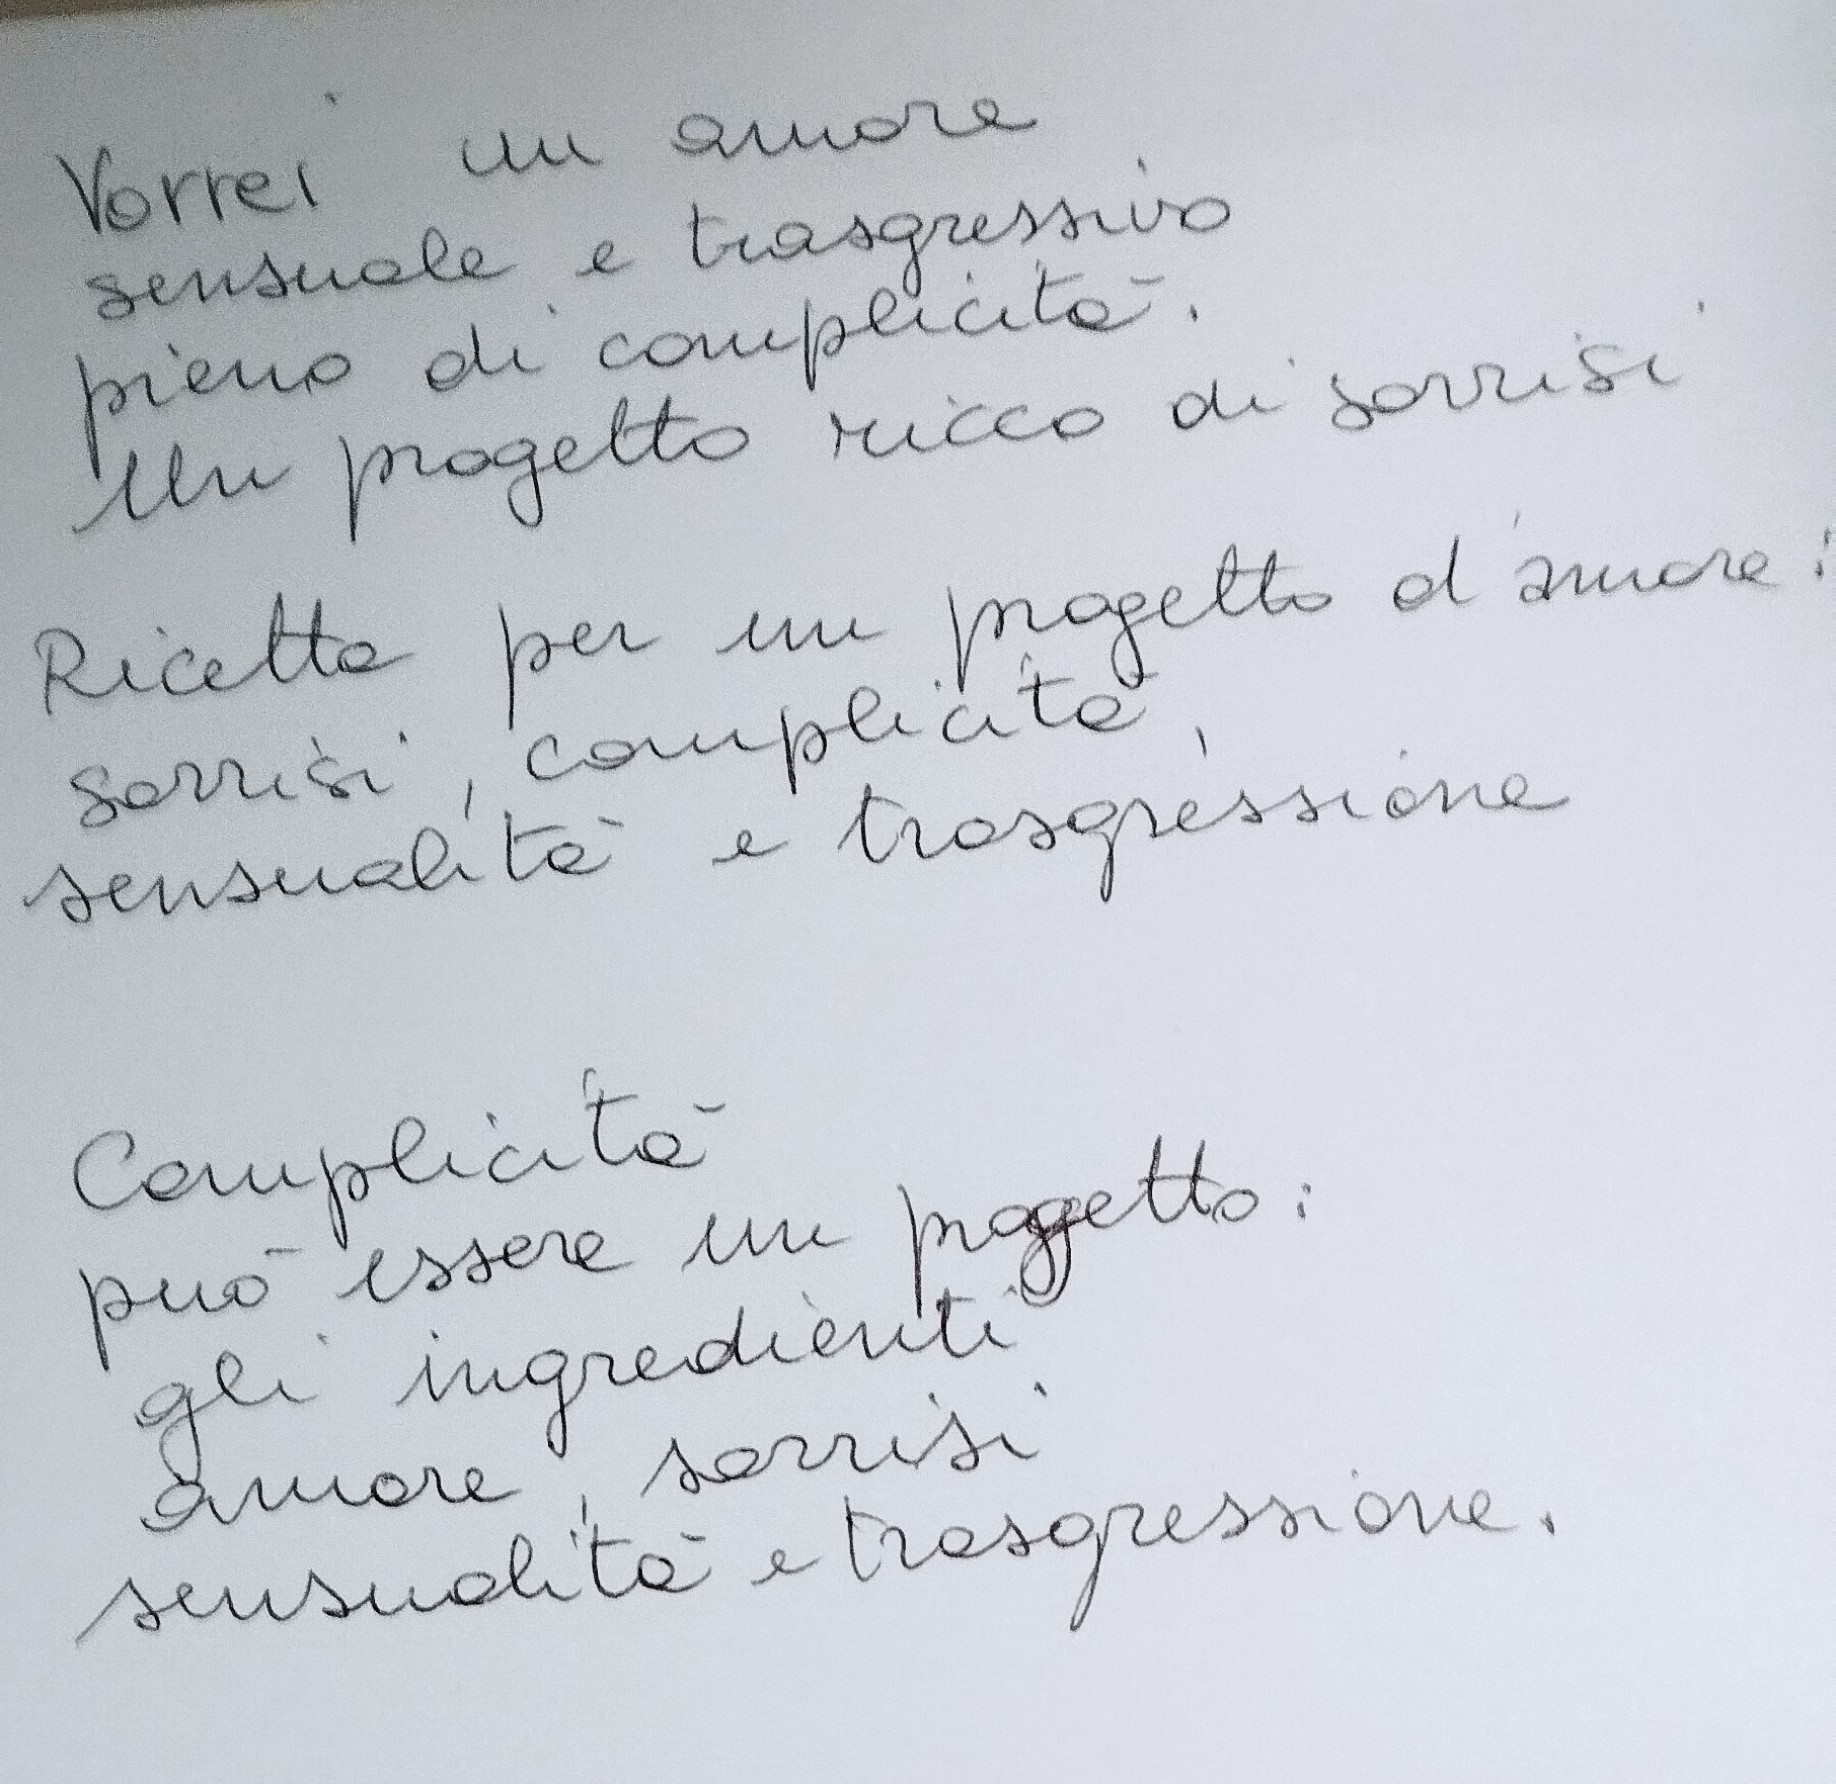 Vorrei un amore
sensuale e trasgressivo
pieno di complicità.
Un progetto ricco di sorrisi
Ricetta per un progetto d'amore:
sorrisi, complicità,
sensualità e trasgressione
Complicità
può essere un progetto:
gli ingredienti
amore, sorrisi
sensualità e trasgressione.